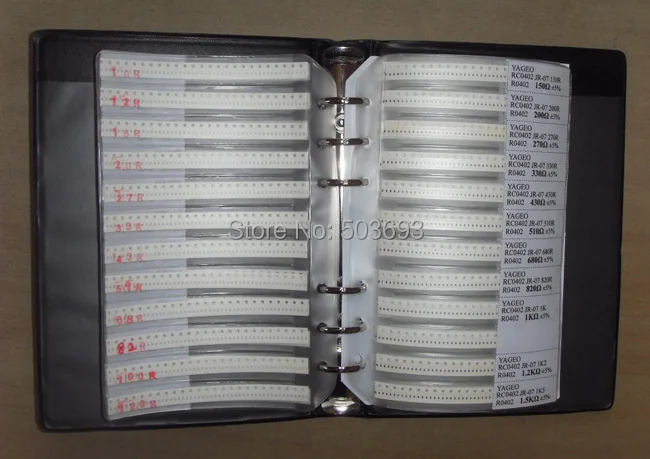 10R
12R
15R
20R
27R
39R
43R
68R
82R
100R
120R
Store No: 503693
YAGEO
RC0402 JR-07 150R
R0402 150Ω ±5%
YAGEO
RC0402 JR-07 200R
R0402 200Ω ±5%
YAGEO
RC0402 JR-07 270R
R0402 270Ω ±5%
YAGEO
RC0402 JR-07 330R
R0402 330Ω ±5%
YAGEO
RC0402 JR-07 430R
R0402 430Ω ±5%
YAGEO
RC0402 JR-07 510R
R0402 510Ω ±5%
YAGEO
RC0402 JR-07 680R
R0402 680Ω ±5%
YAGEO
RC0402 JR-07 820R
R0402 820Ω ±5%
YAGEO
RC0402 JR-07 1K
R0402 1KΩ ±5%
YAGEO
RC0402 JR-07 1K2
R0402 1.2KΩ ±5%
YAGEO
RC0402 JR-07 1K5
R0402 1.5KΩ ±5%